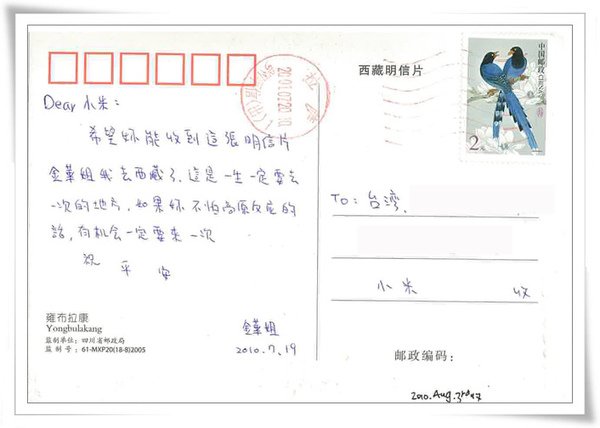 西藏明信片
中国邮政 CHINA
2元
2010.07.20.10
Dear 小米：
希望妳能收到這張明信片
金華姐我去西藏了，這是一生一定要去
一次的地方，如果妳不怕高原反应的
話，有机会一定要來一次
祝 平 安
金華姐
2010.7.19
雍布拉康
Yongbulakang
监制单位：四川省邮政局
监 制 号：61-MXP20(18-8)2005
To：台湾，
小米 收
邮政编码：
2010.Aug.